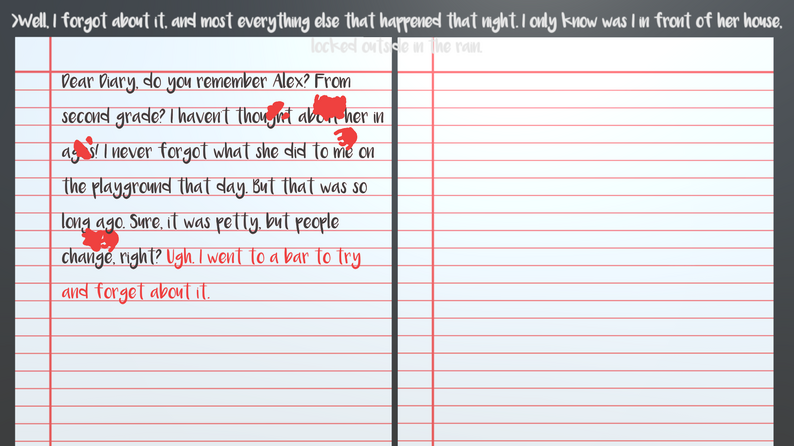 >Well, I forgot about it, and most everything else that happened that night. I only know was I in front of her house,
locked outside in the rain.
Dear Diary, do you remember Alex? From
second grade? I haven't thought about her in
ages! I never forgot what she did to me on
the playground that day. But that was so
long ago. Sure, it was petty, but people
change, right? Ugh. I went to a bar to try
and forget about it.